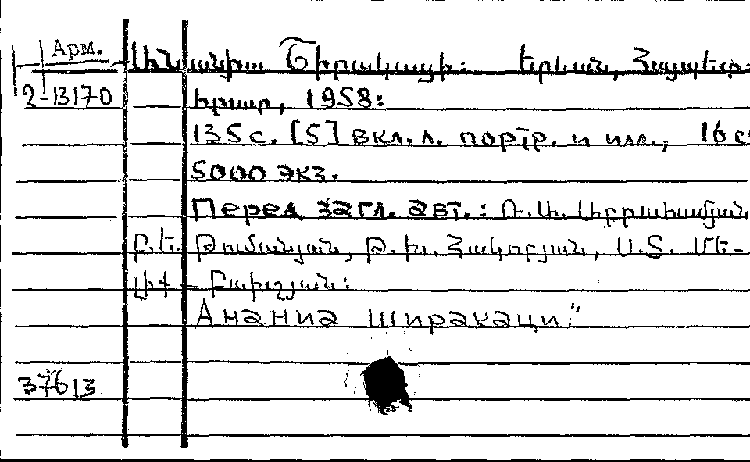 Арм.
Անանիա Շիրակացի: Երևան, Հայպետ-
2-13170
հրատ, 1958:
135 с. [5] вкл. л. портр. и илл., 16 с
5000 экз.
Перед загл. авт.: Ռ.Ա. Աբրահամյան,
Բ.Ե. Թումանյան, Թ.Խ. Հակոբյան, Ս.Տ. Մե-
լիք-Բախշյան:
Анания Ширакаци"
37613